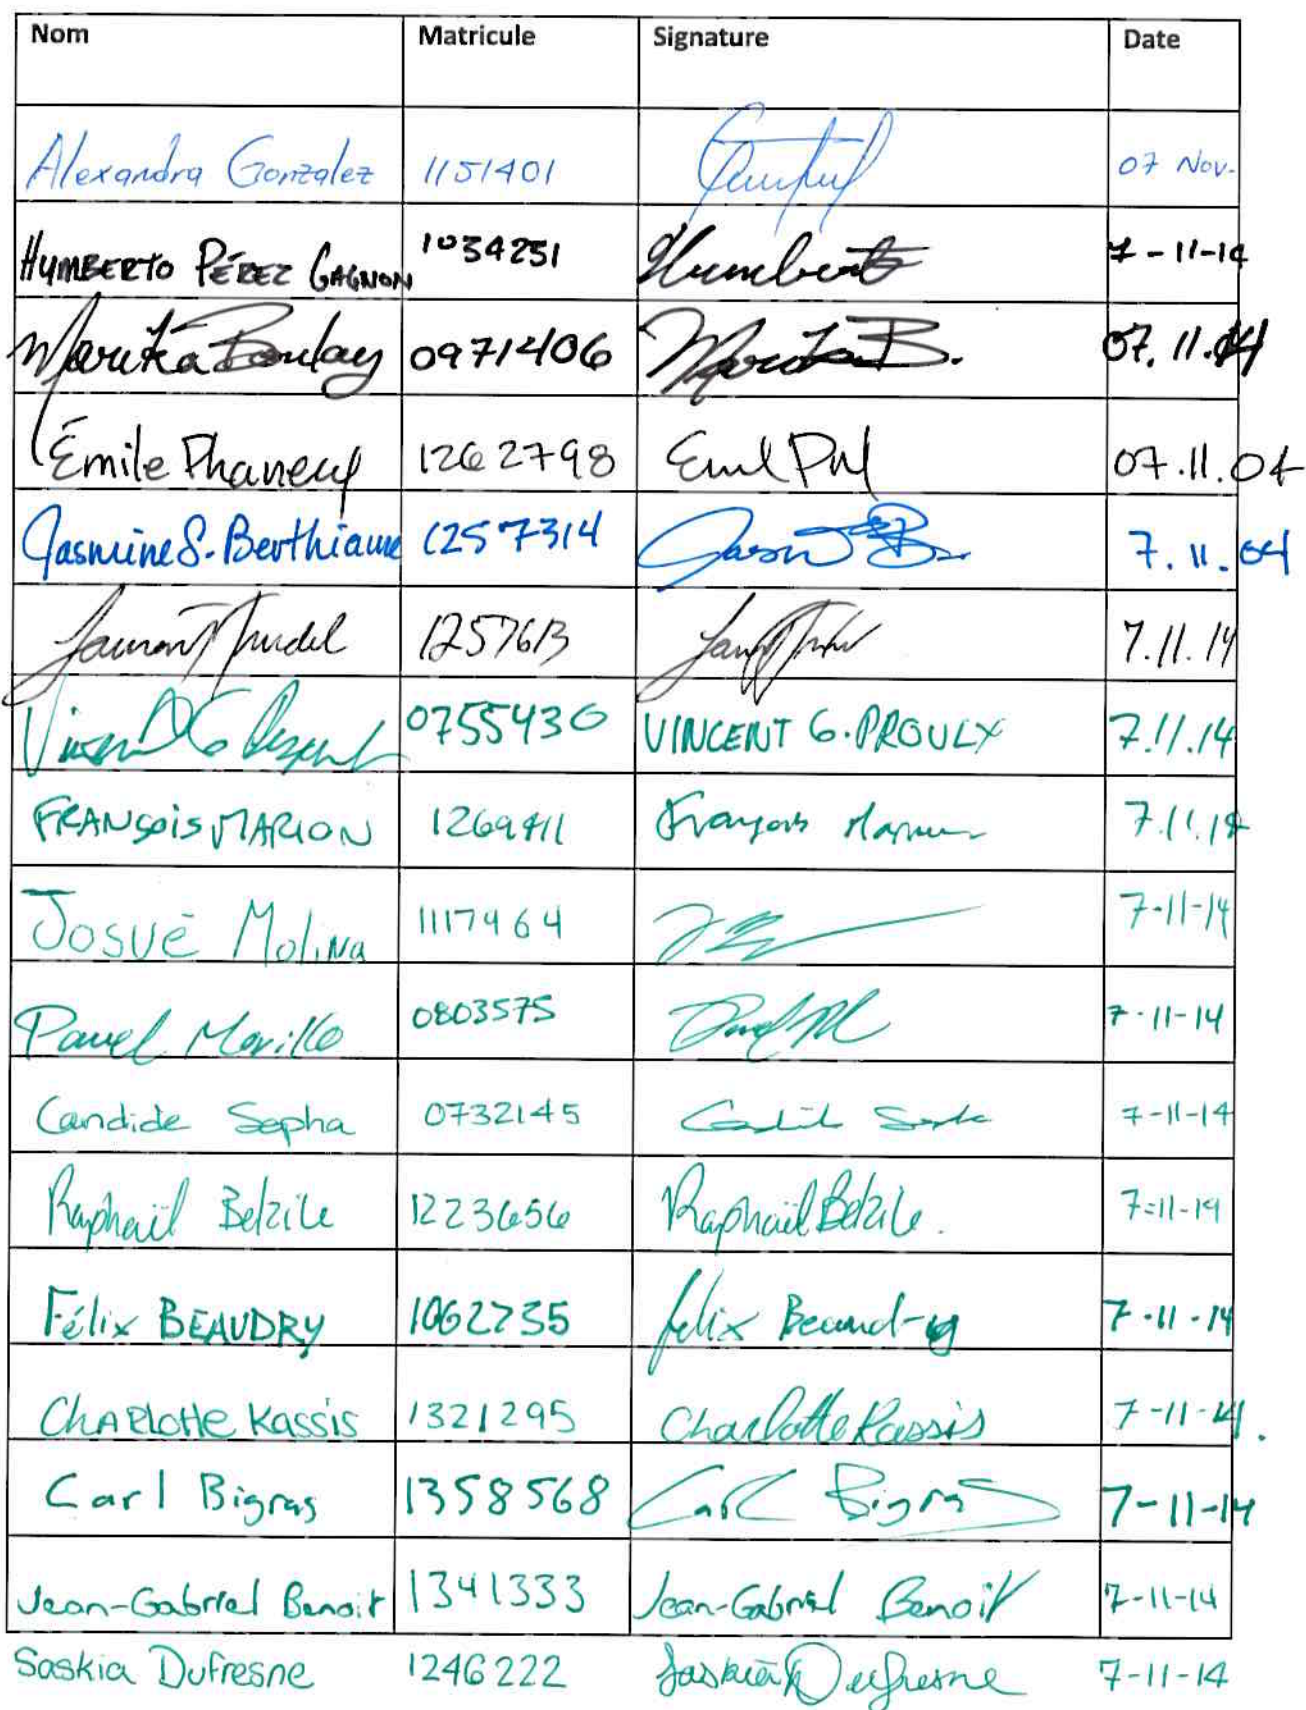 Nom Matricule Signature Date
Alexandra Gonzalez 1151401 07 Nov.
HUMBERTO PÉREZ GAGNON 1034251 Humberto 7-11-14
Marika Boulay 0971406 Marika B. 07.11.14
Émile Phaneuf 1262798 07.11.04
Jasmine S. Berthiaume 1257314 7.11.04
Laurent Trudel 1257613 7.11.14
Vincent G 0755430 VINCENT G. PROULX 7.11.14
FRANÇOIS MARION 1269411 François Marion 7.11.14
Josué Molina 1117464 7-11-14
Pavel Morillo 0803575 7-11-14
Candide Sepha 0732145 7-11-14
Raphaël Belzile 1223656 Raphaël Belzile. 7-11-14
Félix BEAUDRY 1062735 félix Beaudry 7-11-14
CHARLOTTE KASSIS 1321295 Charlotte Kassis 7-11-14.
Carl Bigras 1358568 Carl Bigras 7-11-14
Jean-Gabriel Benoit 1341333 Jean-Gabriel Benoit 7-11-14
Saskia Dufresne 1246222 Saskia Dufresne 7-11-14